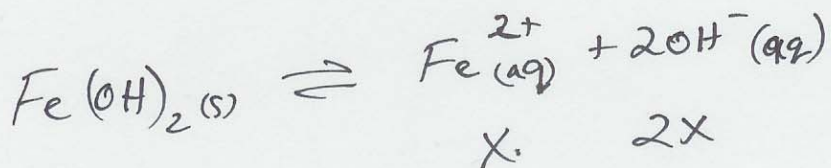 Fe(OH)₂(s) ⇌ Fe²⁺(aq) + 2OH⁻(aq)
x. 2x